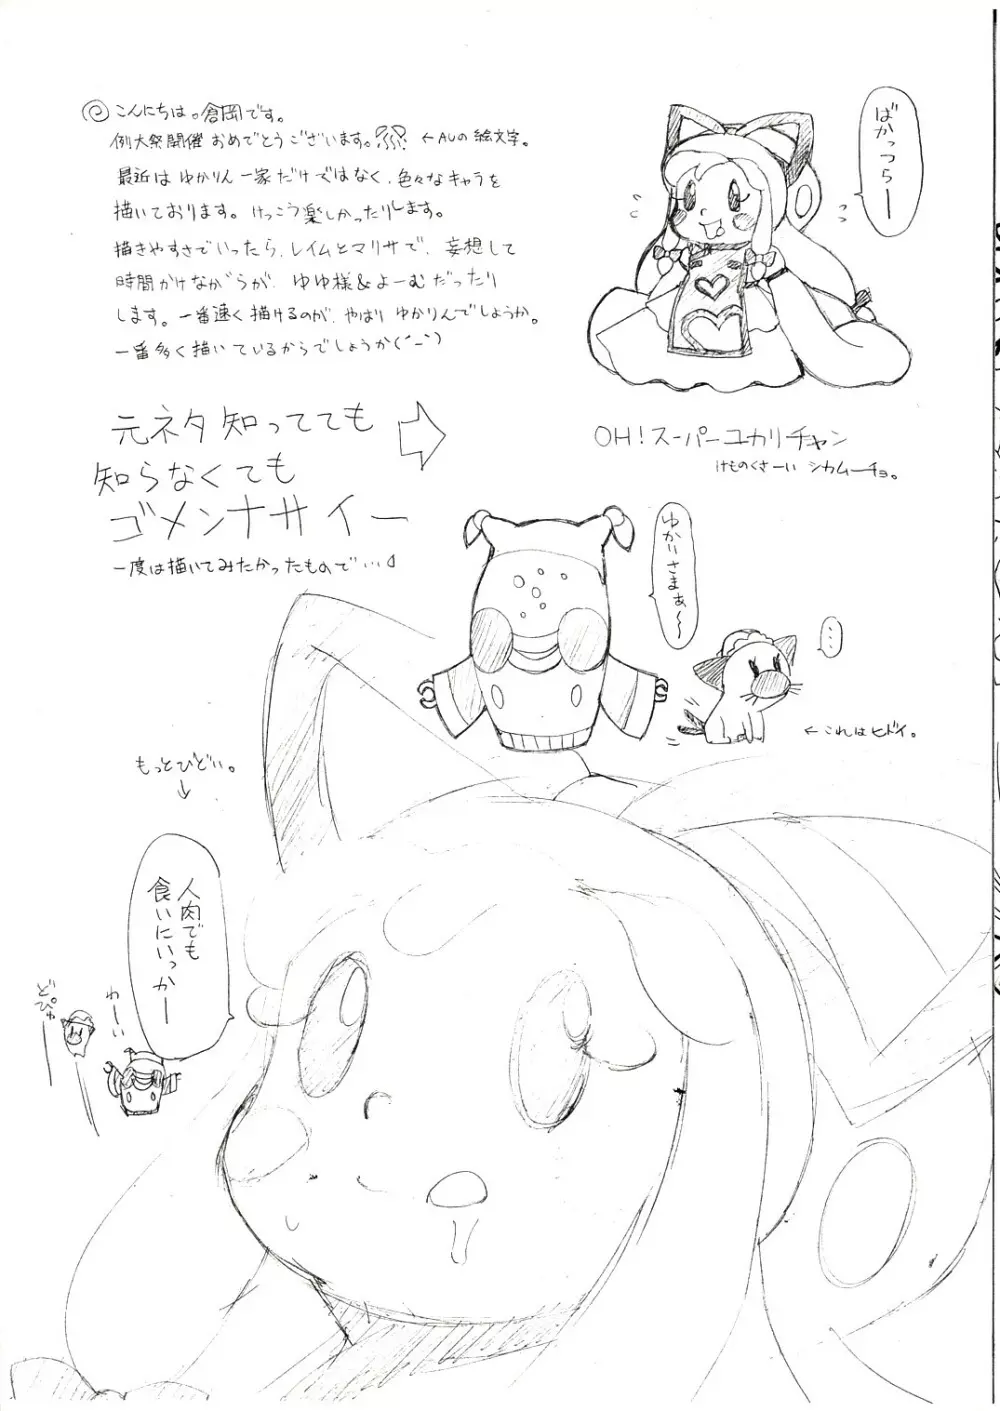 こんにちは。倉岡です。
例大祭開催 おめでとうございます。 ←AUの絵文字。
最近は ゆかりん一家だけではなく、色々なキャラを
描いております。けっこう楽しかったりします。
描きやすさでいったら、レイムとマリサで、妄想して
時間かけながらが、ゆゆ様&よーむだったり
します。一番速く描けるのが、やはり ゆかりんでしょうか。
一番多く描いているからでしょうか(´ー`)
元ネタ知ってても
知らなくても
ゴメンナサイー
一度は描いてみたかったもので…
ばかっつらー
OH!スーパーユカリチャン
けものくさーい シカムーチョ。
ゆかりさまぁ〜
…
←これはヒドイ。
もっとひどい。
↓
人肉でも
食いにいっかー
わーい
どぴゅ